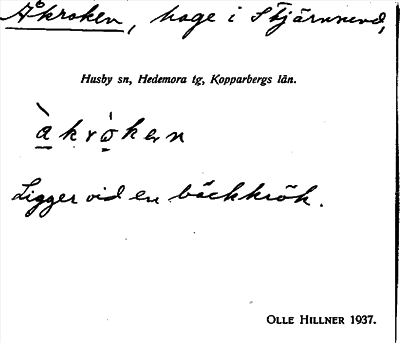 Åkroken, hage i Stjärnsund,
Husby sn, Hedemora tg, Kopparbergs län.
àkrò̱ken
Ligger vid en bäckkrök.
OLLE HILLNER 1937.